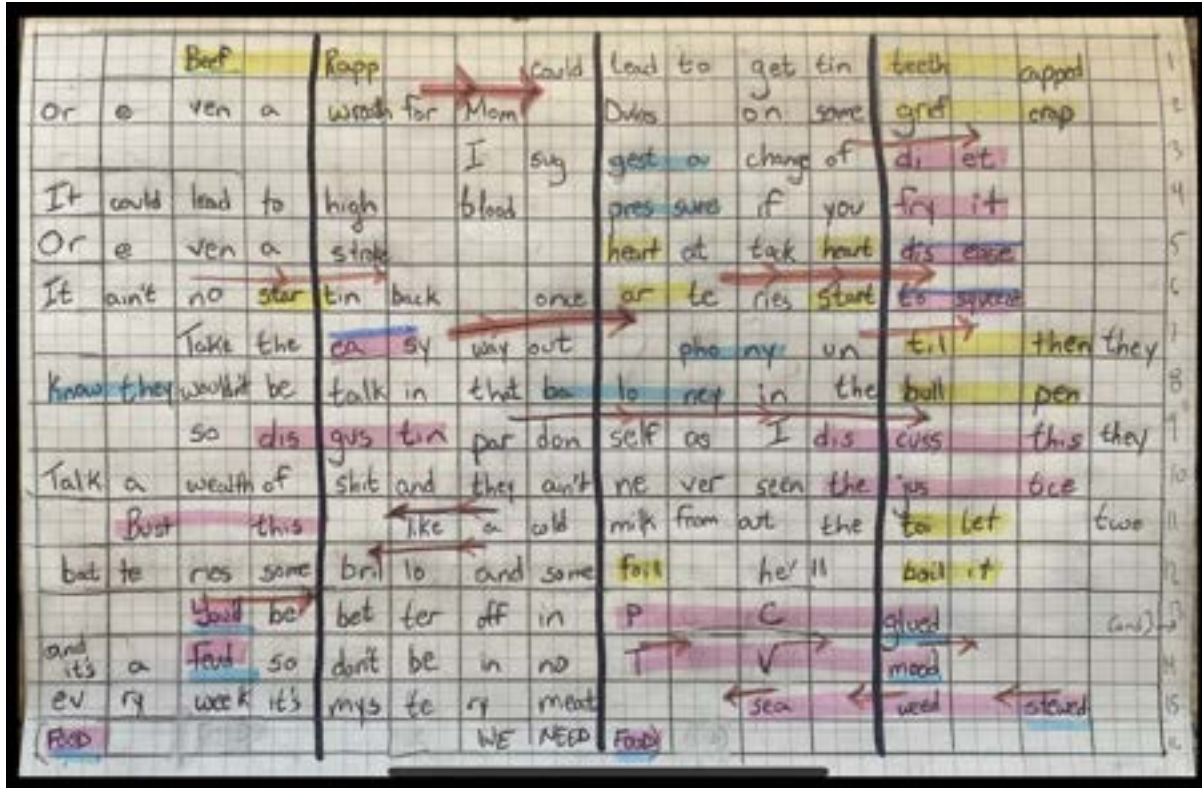 Beef Rapp could lead to get tin teeth capped 1
Or e ven a wreath for Mom Dukes on some grief crap 2
I sug gest a change of di et 3
It could lead to high blood pres sure if you fry it 4
Or e ven a stroke heart at tack heart dis ease 5
It ain't no star tin back once ar te ries start to squeeze 6
Take the ea sy way out pho ny un til then they 7
Know they wouldn't be talk in that ba lo ney in the bull pen 8
so dis gus tin par don self as I dis cuss this they 9
Talk a wealth of shit and they ain't ne ver seen the jus tice 10
Bust this like a cold milk from out the toi let two 11
bat te ries some bril lo and some foil he'll boil it 12
You'd be bet ter off in P C glued (and) 13
and it's a feud so don't be in no T V mood 14
ev ry week it's mys te ry meat sea weed stewed 15
(FOOD) WE NEED FOOD)